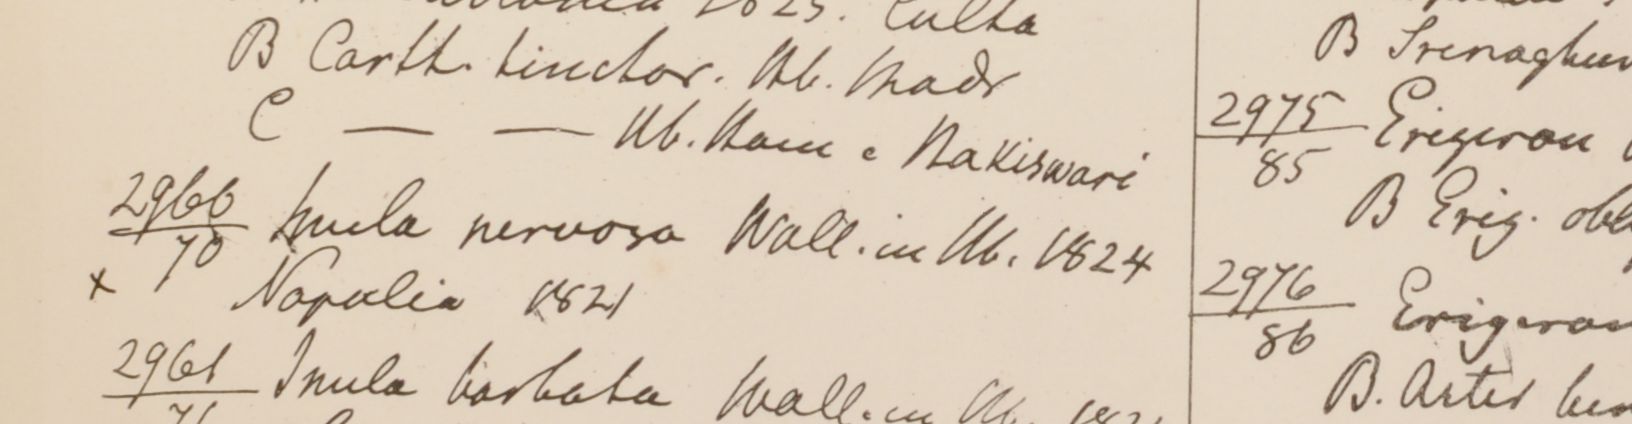 1825. Culta
B Carth. tinctor. Hb. Madr
C — — Hb. Ham e Nakiswari
2960/70 Inula nervosa Wall. in Hb. 1824
x Napalia 1821
2961/71 Inula barbata Wall. in Hb. 182
B Srenaghur
2975/85 Erigeron
B Erig. obl
2976/86 Erigeron
B. Aster